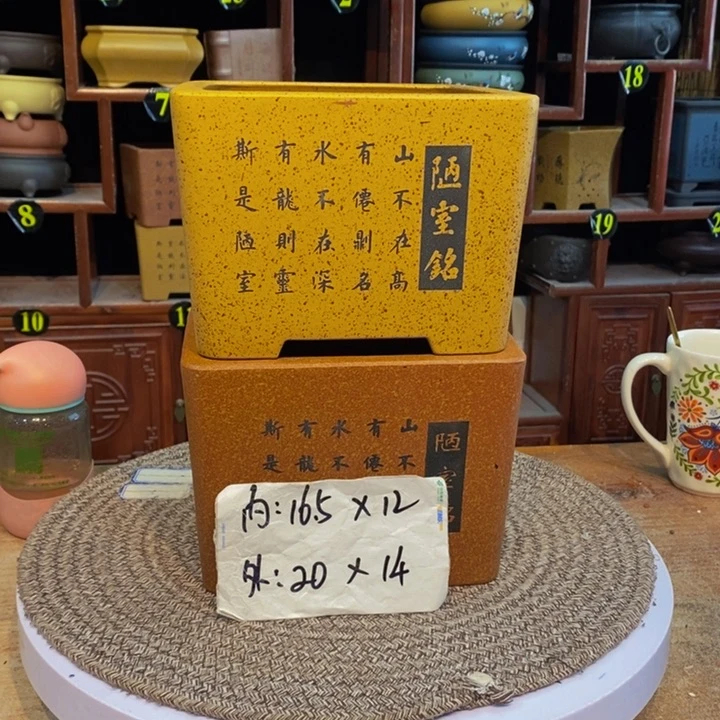 陋室銘
山不在高
有僊則名
水不在深
有龍則靈
斯是陋室
陋室
山不
有僊
水不
有龍
斯是
内:16.5 × 12
外:20 × 14
7
18
8
19
10